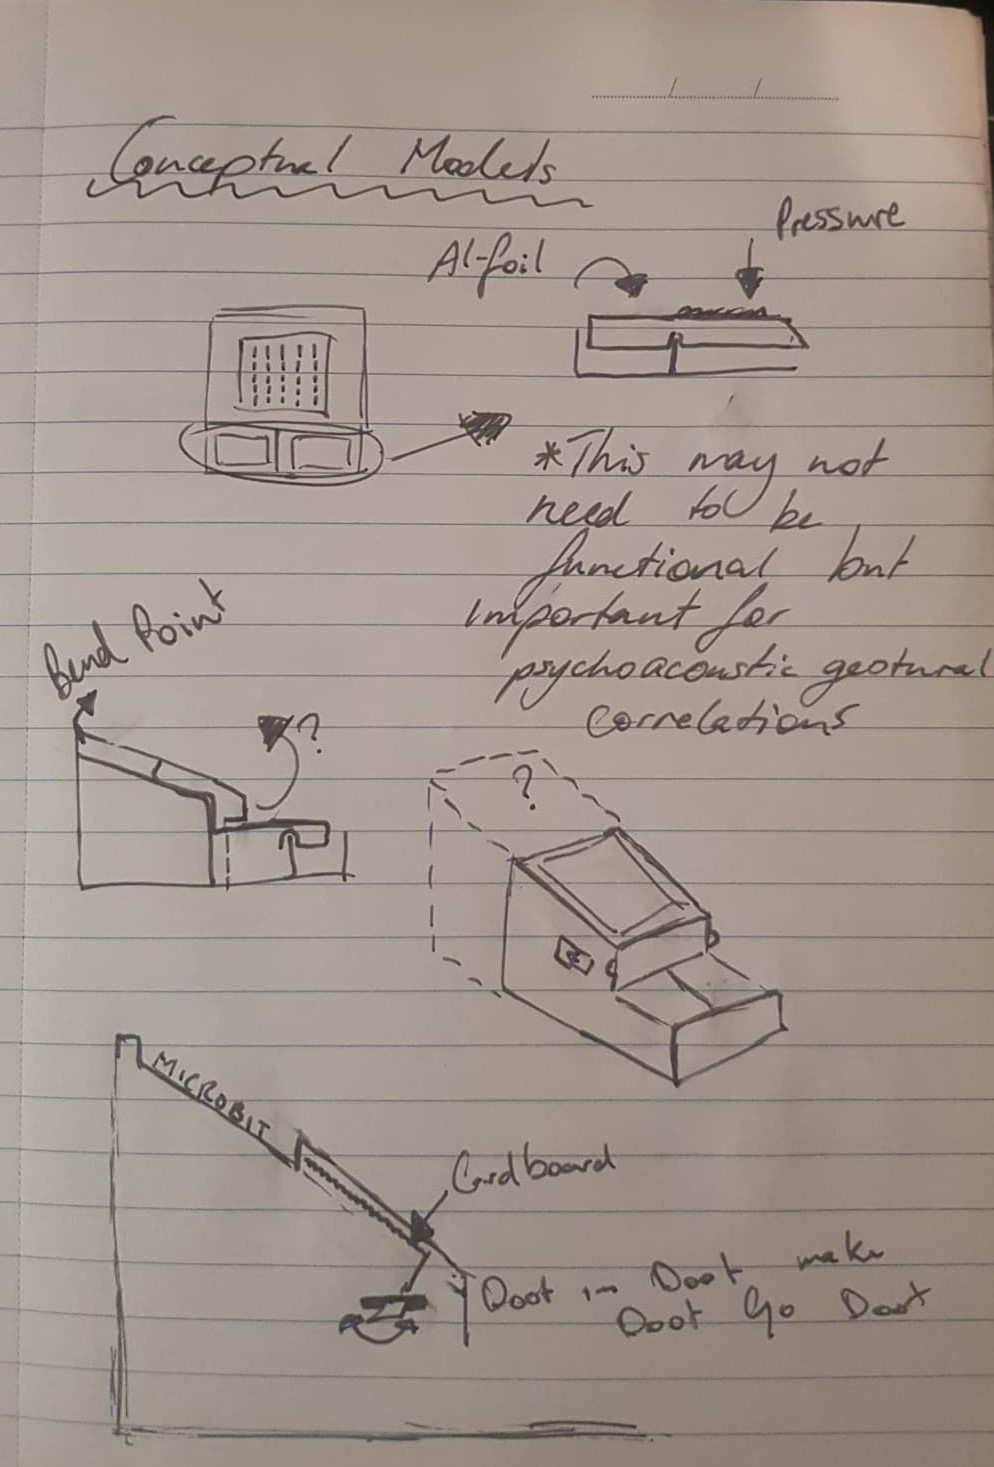 Conceptual Models
Pressure
Al-foil
*This may not
need to be
functional but
important for
psychoacoustic gestural
correlations
Bend Point
?
?
MICROBIT
Cardboard
Doot in Doot make
Doot Go Doot